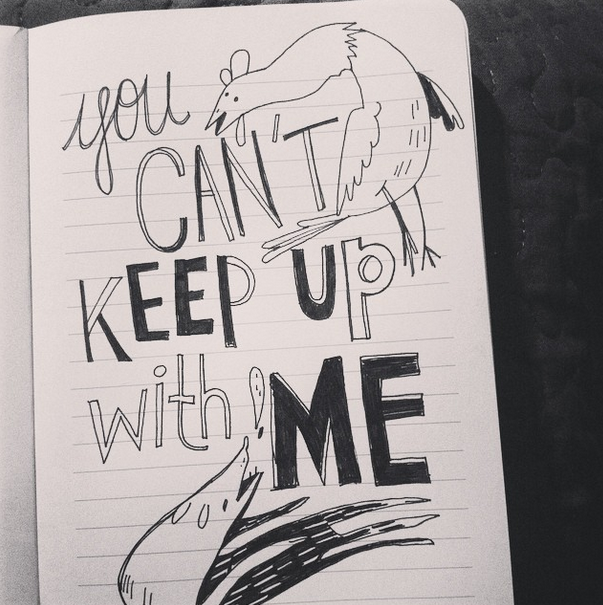 you
CAN'T
KEEP UP
with
ME